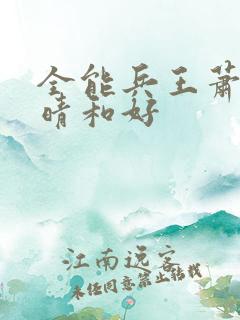 全能兵王萧
晴和好
江南远客
未经同意禁止转载